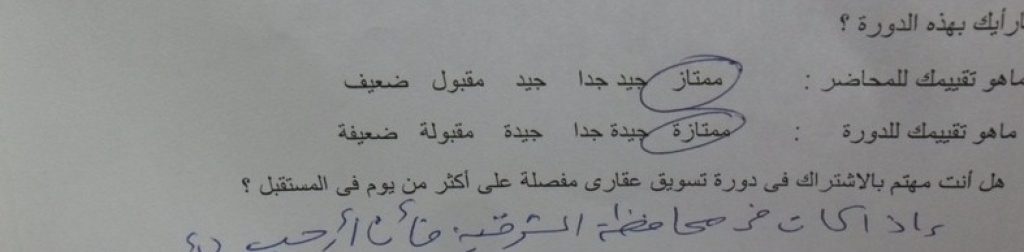 رأيك بهذه الدورة ؟
ماهو تقييمك للمحاضر : ممتاز جيد جدا جيد مقبول ضعيف
ماهو تقييمك للدورة : ممتازة جيدة جدا جيدة مقبولة ضعيفة
هل أنت مهتم بالاشتراك فى دورة تسويق عقارى مفصلة على أكثر من يوم فى المستقبل ؟
محافظة الشرقية فأنا أرحب